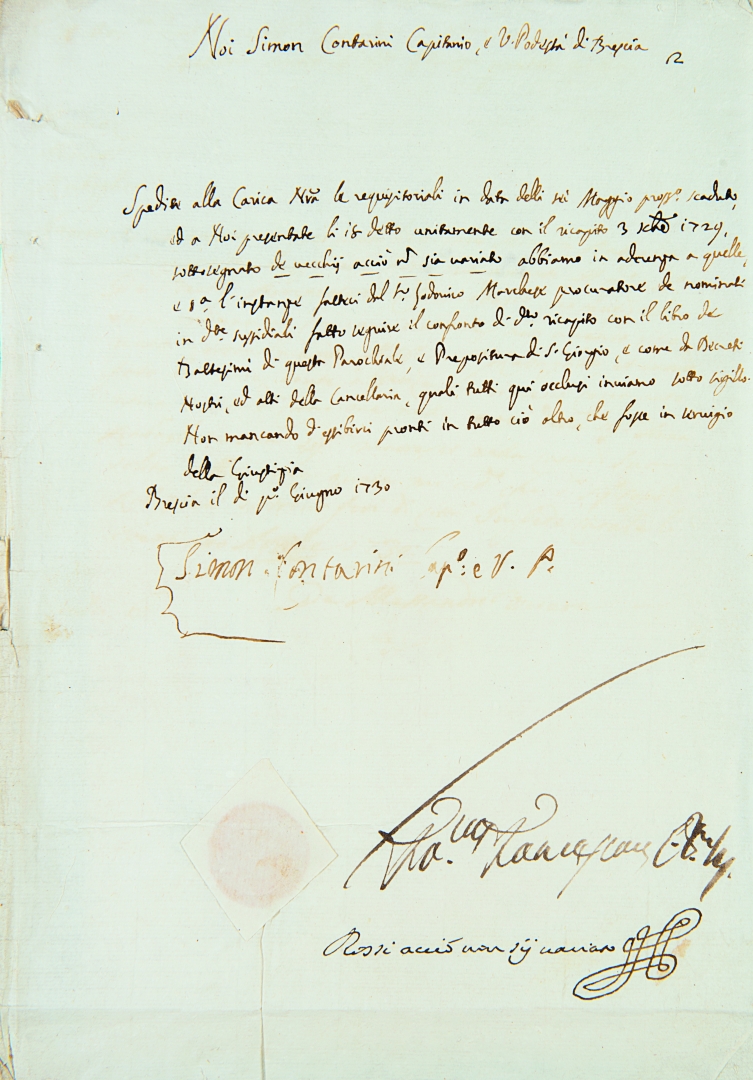 Noi Simon Contarini Capitanio, e V. Podestà di Brescia
2
Spedite alla Carica Nrã le requisitoriali in data delli sei Maggio prossº. scaduto,
ed a Noi presentate li 18 detto unitamente con il ricapito 3 1729,
sottosegnato de vecchij acciò nõ sia variato abbiamo in aderenza a quelle,
e l'instanze fatteci dal Sr. Lodovico Marchese procuratore de nominati
in dtte sussidiali fatto seguire il confronto di dtto ricapito con il libro de
Battesimi di questa Parochiale, e Prepositura di S. Giorgio, e come da Decreti
Nostri, ed atti della Cancellaria, quali tutti qui occlusi inviamo sotto sigillo.
Non mancando d'essibirci pronti in tutto ciò altro, che fosse in servigio
della Giustizia
Brescia il di pº. Giugno 1730
Simon Contarini Capº. e V. P.
Rossi acciò non sij variato